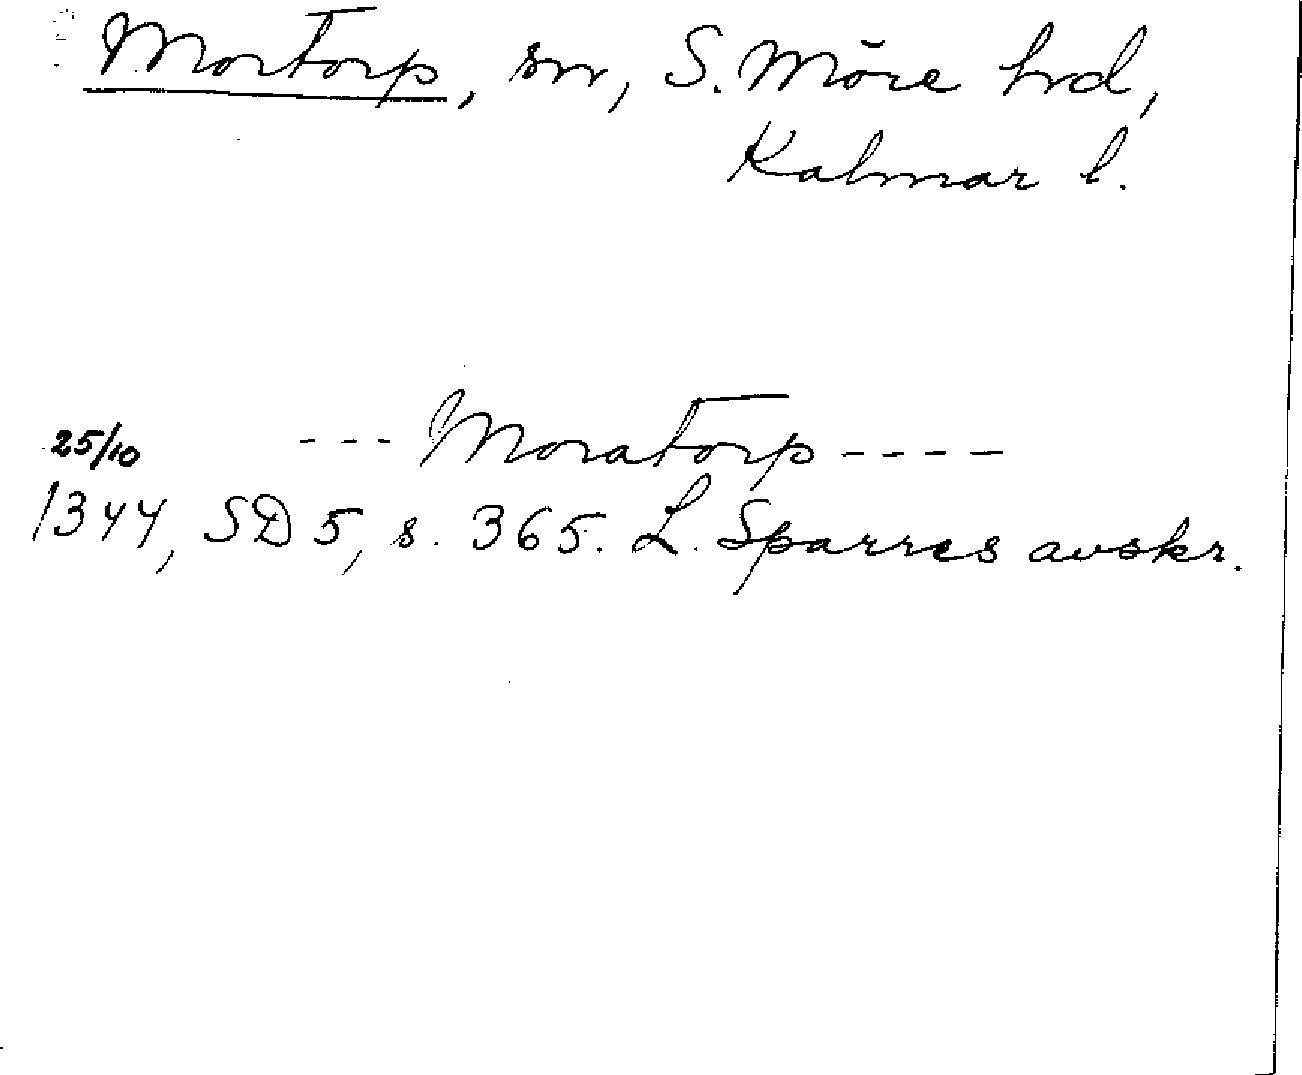 Mortorp, sn, S. Möre hd,
Kalmar l.
25/10 --- Moratorp ----
1344, SD 5, s. 365. L. Sparres avskr.